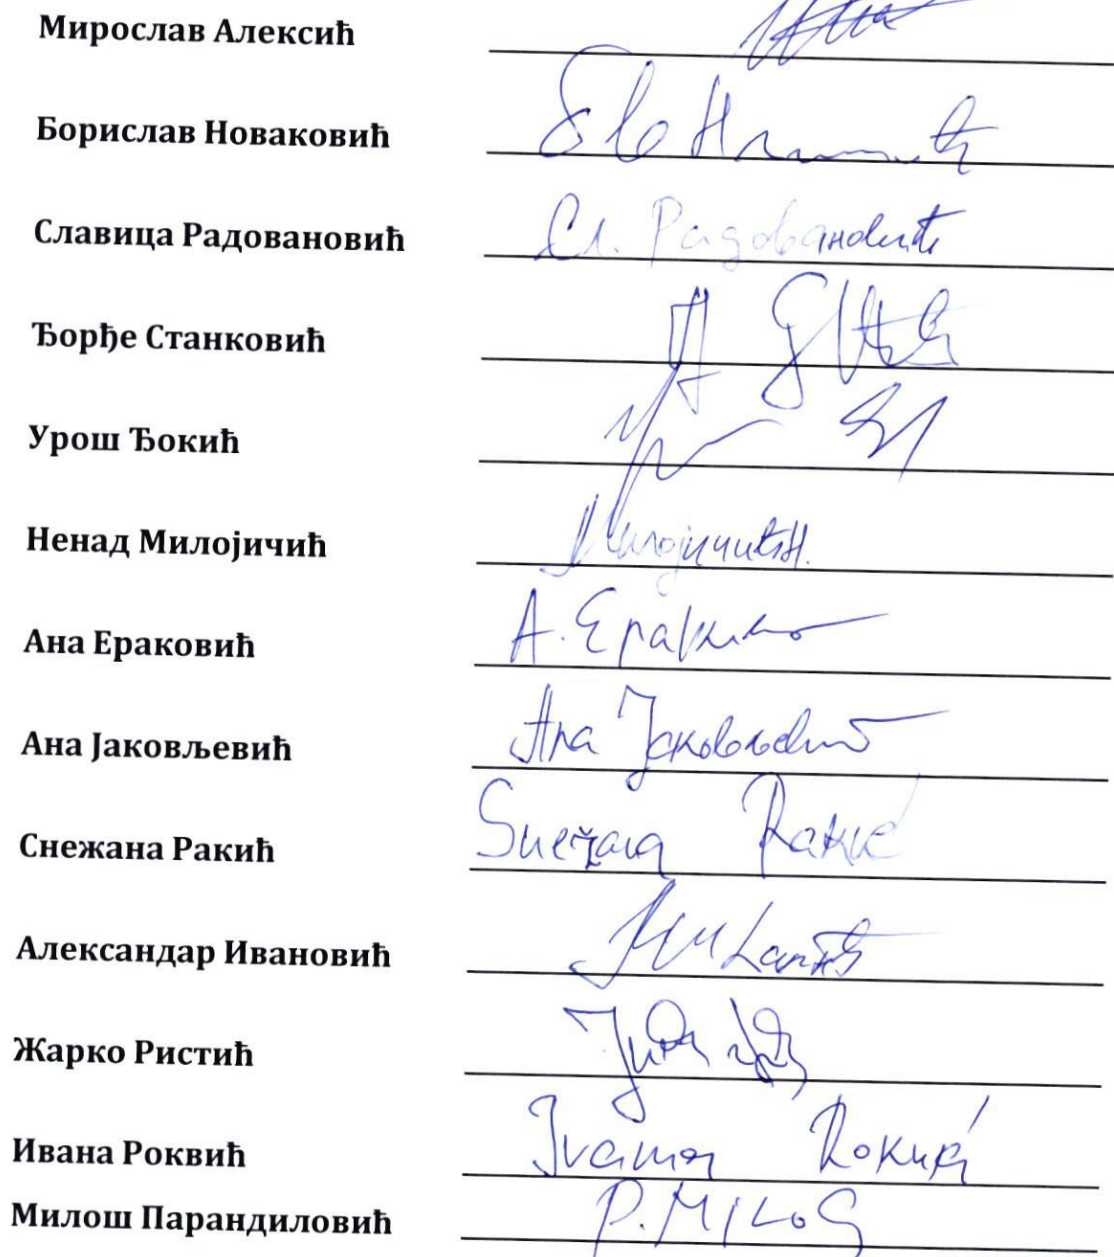 Мирослав Алексић
Борислав Новаковић
Славица Радовановић Сл. Радовановић
Ђорђе Станковић
Урош Ђокић
Ненад Милојичић Милојичић Н.
Ана Ераковић А. Ераковић
Ана Јаковљевић Ана Јаковљевић
Снежана Ракић Snežana Rakić
Александар Ивановић
Жарко Ристић
Ивана Роквић Ivana Rokvić
Милош Парандиловић P. MILOŠ